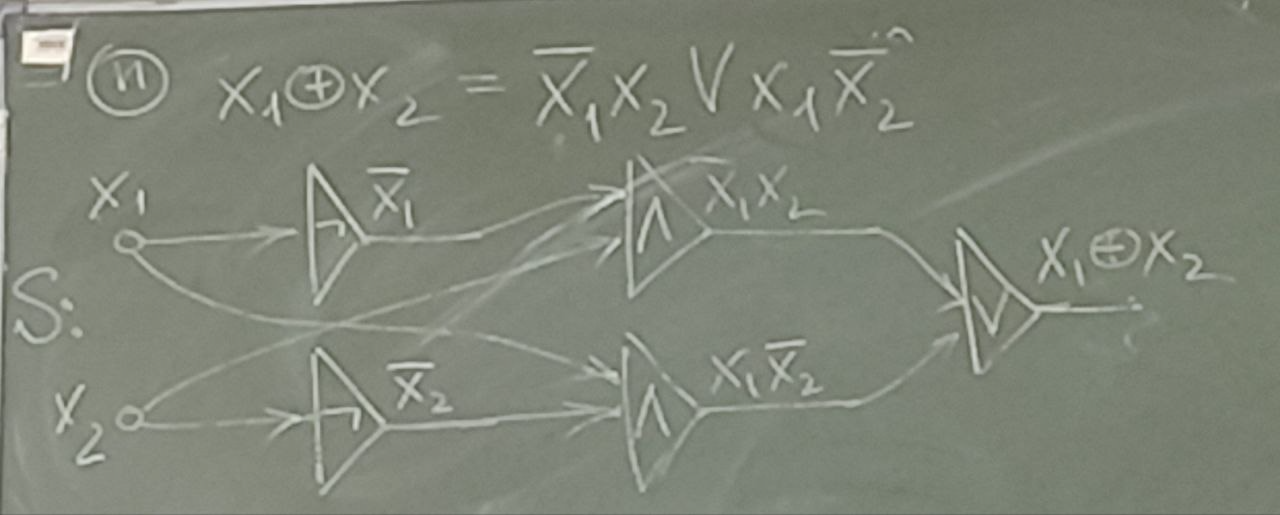 Ⓟ x₁⊕x₂ = x̅₁x₂ ∨ x₁x̅₂
x₁ ¬ x̅₁ ∧ x̅₁x₂
S: ∨ x₁⊕x₂
x₂ ¬ x̅₂ ∧ x₁x̅₂